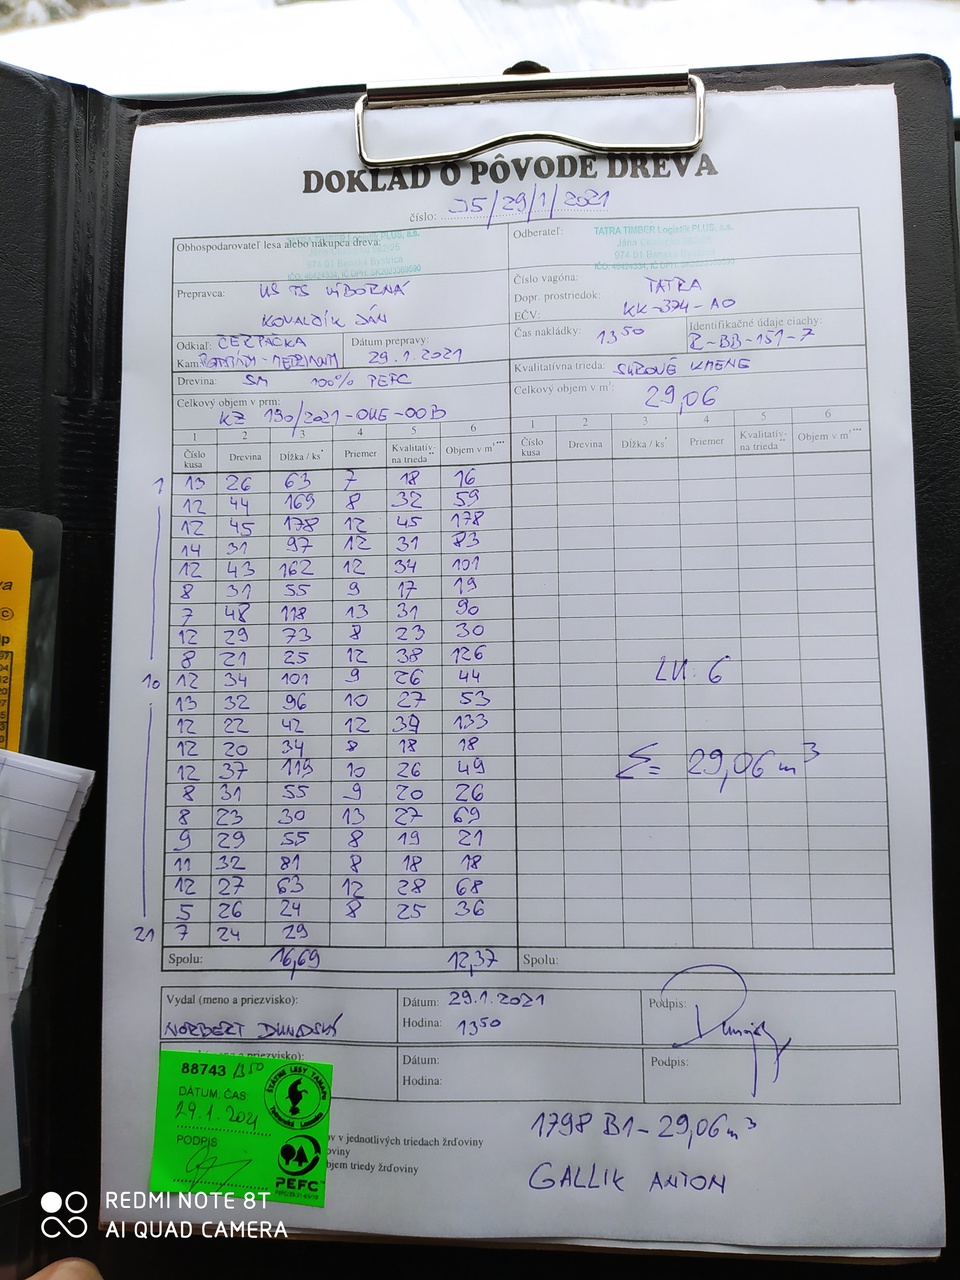 DOKLAD O PÔVODE DREVA
číslo: 35/29/1/2021
Obhospodarovateľ lesa alebo nákupca dreva:
TATRA TIMBER Logistik PLUS, a.s.
974 01 Banská Bystrica
IČO: 46424334, IČ DPH: SK2023369590
Odberateľ:
TATRA TIMBER Logistik PLUS, a.s.
974 01 Banská Bystrica
IČO: 46424334, IČ DPH: SK2023369590
Prepravca: UŠ TS VÝBORNÁ
KOVALČÍK JÁN
Číslo vagóna:
Dopr. prostriedok: TATRA
EČV: KK-374-AO
Odkiaľ: ČERPAČKA
Kam:
Dátum prepravy:
29.1.2021
Čas nakládky:
13 50
Identifikačné údaje ciachy:
R-BB-151-7
Drevina: SM 100% PEFC
Kvalitatívna trieda: SUROVÉ KMENE
Celkový objem v prm:
KZ 190/2021-OUE-OOB
Celkový objem v m³:
29,06
1 2 3 4 5 6 1 2 3 4 5 6
Číslo kusa Drevina Dĺžka / ks* Priemer Kvalitatív-na trieda** Objem v m³*** Číslo kusa Drevina Dĺžka / ks* Priemer Kvalitatív-na trieda** Objem v m³***
1 13 26 63 7 18 16
12 44 169 8 32 59
12 45 178 12 45 178
14 31 97 12 31 83
12 43 162 12 34 101
8 31 55 9 17 19
7 48 118 13 31 90
12 29 73 8 23 30
8 21 25 12 38 126
10 12 34 101 9 26 44
13 32 96 10 27 53
12 22 42 12 39 133
12 20 34 8 18 18
12 37 119 10 26 49
8 31 55 9 20 26
8 23 30 13 27 69
9 29 55 8 19 21
11 32 81 8 18 18
12 27 63 12 28 68
5 26 24 8 25 36
21 7 24 29
LU: 6
Σ= 29,06 m³
Spolu: 16,69 12,37 Spolu:
Vydal (meno a priezvisko):
NORBERT DUNAJSKÝ
Dátum: 29.1.2021
Hodina: 13 50
Podpis:
a priezvisko):
Dátum:
Hodina:
Podpis:
88743
DÁTUM, ČAS
29.1.2021
PODPIS
ŠTÁTNE LESY TANAPu
PEFC
ov v jednotlivých triedach žrďoviny
oviny
bjem triedy žrďoviny
1798 B1-29,06 m³
GALLIK ANTON
REDMI NOTE 8T
AI QUAD CAMERA